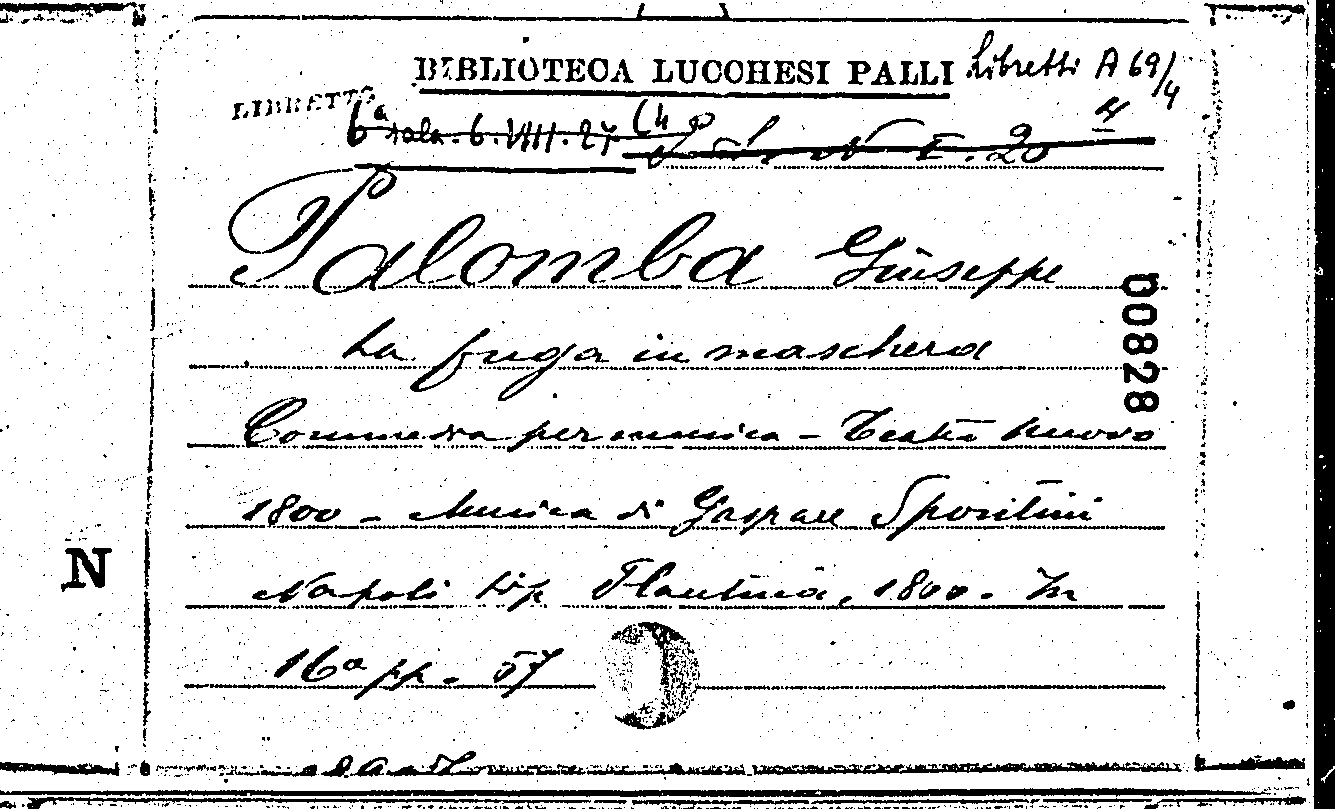 BIBLIOTECA LUCCHESI PALLI Libretti A 69/4
LIBRETTO
6ª sala. 6. VIII. 27 (4
I. 20 4
Palomba Giuseppe
La fuga in maschera
Commedia per musica - Teatro nuovo
1800 - Musica di Gaspare Spontini
Napoli tip Flautina, 1800. In
16º pp. 57
00828
N